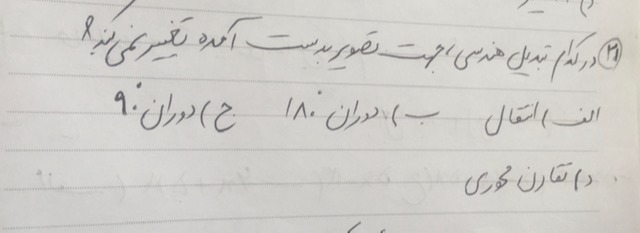 ۲۱) در کدام تبدیل هندسی، جهت تصویر بدست آمده تغییر نمی کند؟
الف) انتقال ب) دوران ۱۸۰° ج) دوران ۹۰°
د) تقارن محوری